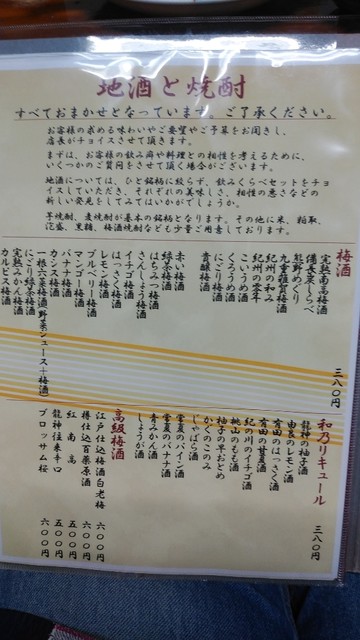 地酒と焼酎
すべておまかせとなっています。ご了承ください。
お客様の求める味わいやご要望やご予算をお聞きし、
店長がチョイスさせて頂きます。
まずは、お客様の飲み向や料理との相性を考えるために、
いくつかのご質問をさせて頂く場合がございます。
地酒については、ひと銘柄に絞らず、飲みくらべセットをチョ
イスしていただき、それぞれの美味しさ、相性の悪さなどの
新しい発見をしてみてはいかがでしょうか。
芋焼酎、麦焼酎が基本の銘柄となります。その他に米、粕取、
泡盛、黒糖、梅酒焼酎なども少量ご用意しております。
梅酒
完熟南高梅酒
備長炭しらべ
熊野めぐり
九重雑賀梅酒
紀州の和み
紀州の零年
こいうめ酒
くろうめ酒
にごり梅酒
貴醸梅酒
赤い梅酒
緑茶梅酒
はちみつ梅酒
さんしょう梅酒
イチゴ梅酒
はっさく梅酒
レモン梅酒
ブルベリー梅酒
マンゴー梅酒
バナナ梅酒
カシス梅酒
一根六菜梅酒(野菜ジュース+梅酒)
にごり緑茶梅酒
完熟みかん梅酒
カルピス梅酒
三八〇円
和乃リキュール
龍神の柚子酒
由良のレモン酒
有田のはっさく酒
有田の甘夏酒
紀の川のイチゴ酒
桃山のもも酒
柚子の早おとめ
かくのこのみ
じゃばら酒
常夏のパイン酒
常夏のバナナ酒
青みかん酒
しょうが酒
三八〇円
高級梅酒
江戸仕込梅酒白老梅 六〇〇円
樽仕込百薬原酒 六〇〇円
紅南高 五〇〇円
龍神往来辛口 五〇〇円
ブロッサム桜 六〇〇円